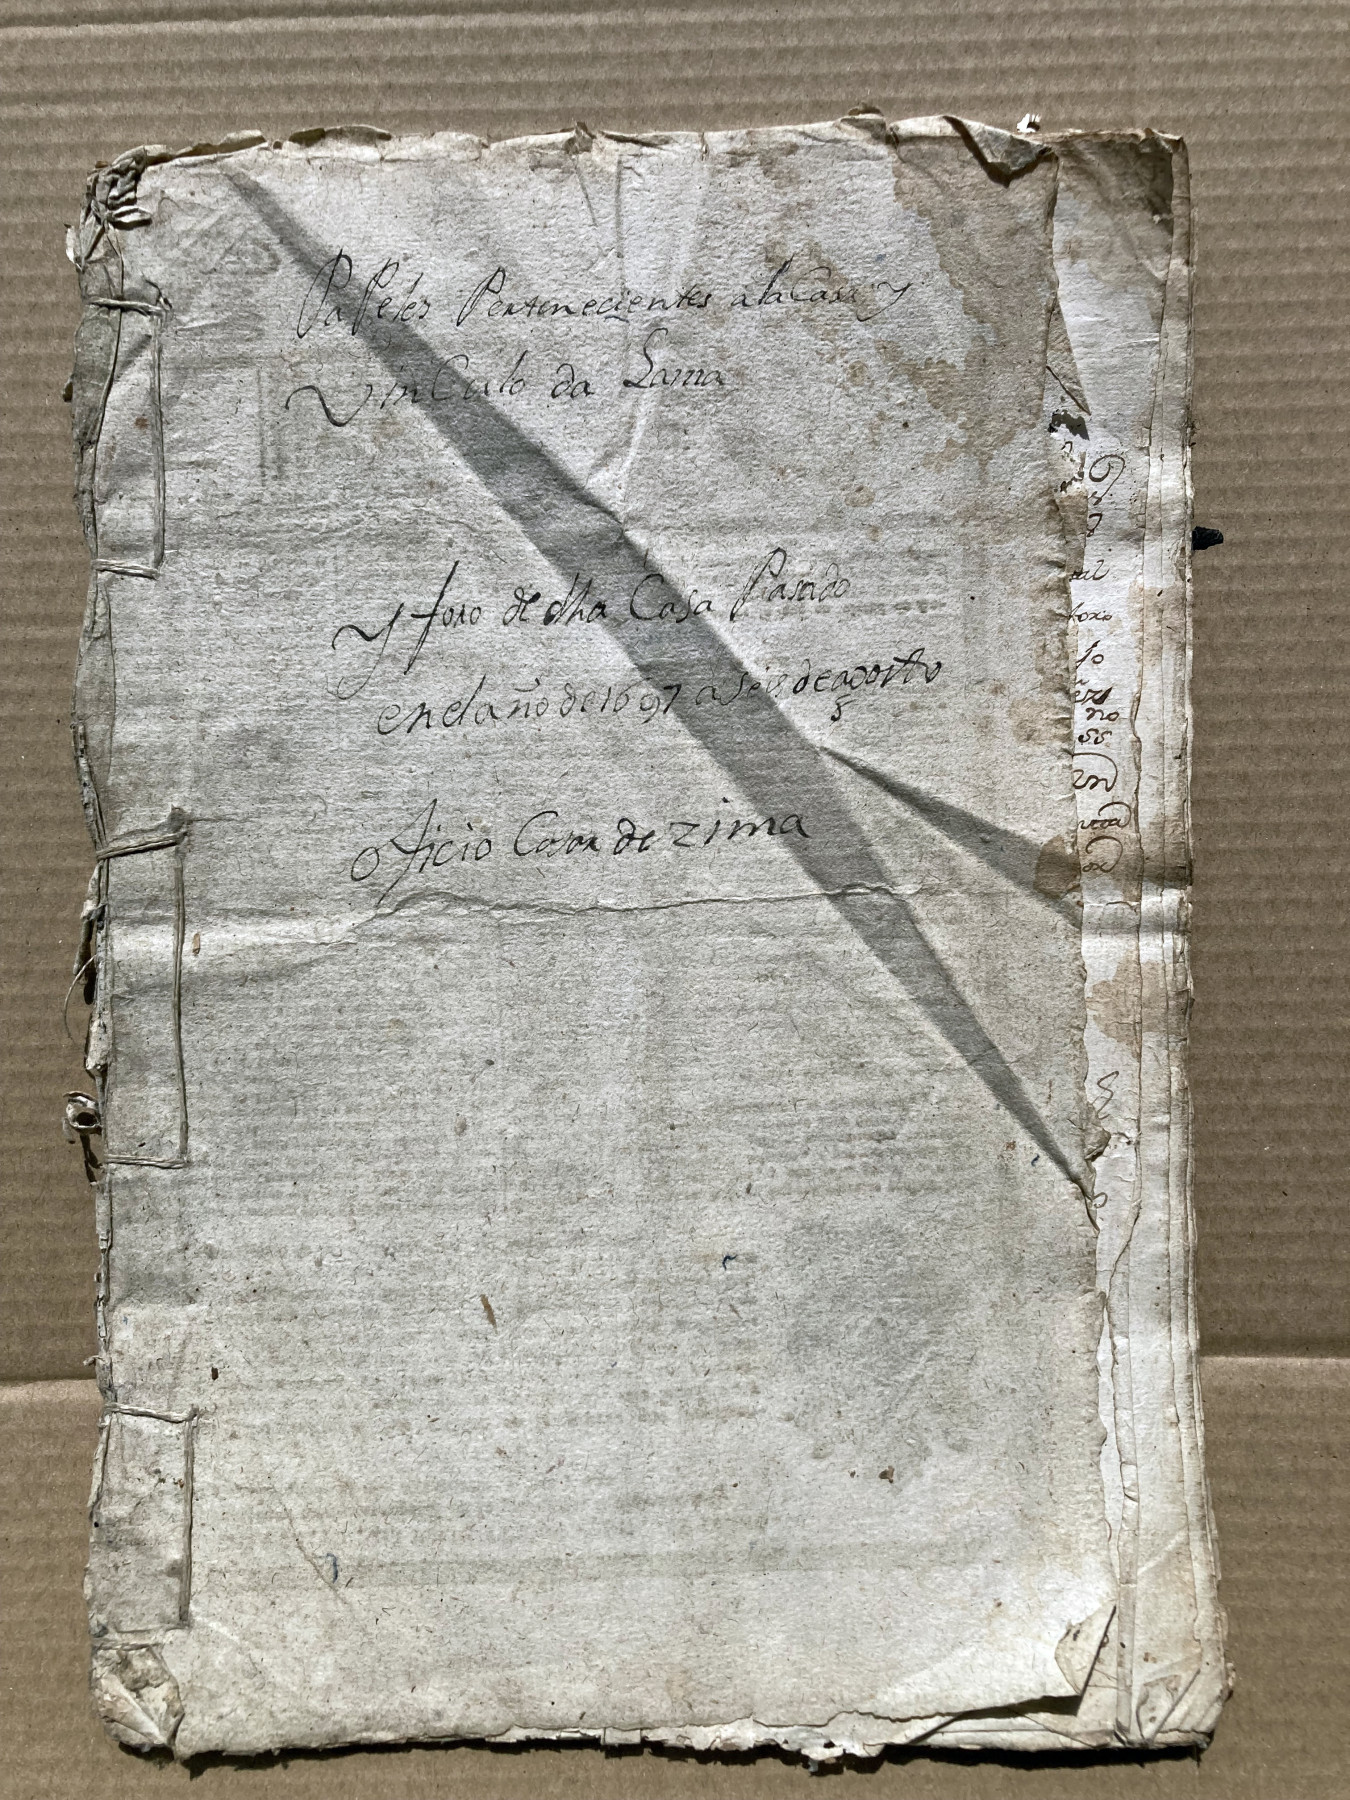 PaPeles Pertenecientes a la Casa y
VinCulo da Lama
y foro de dha Casa Pasado
en el año de 1697 a seis de agosto
oficio Casa de zima
al
foxo
fo
no
ss